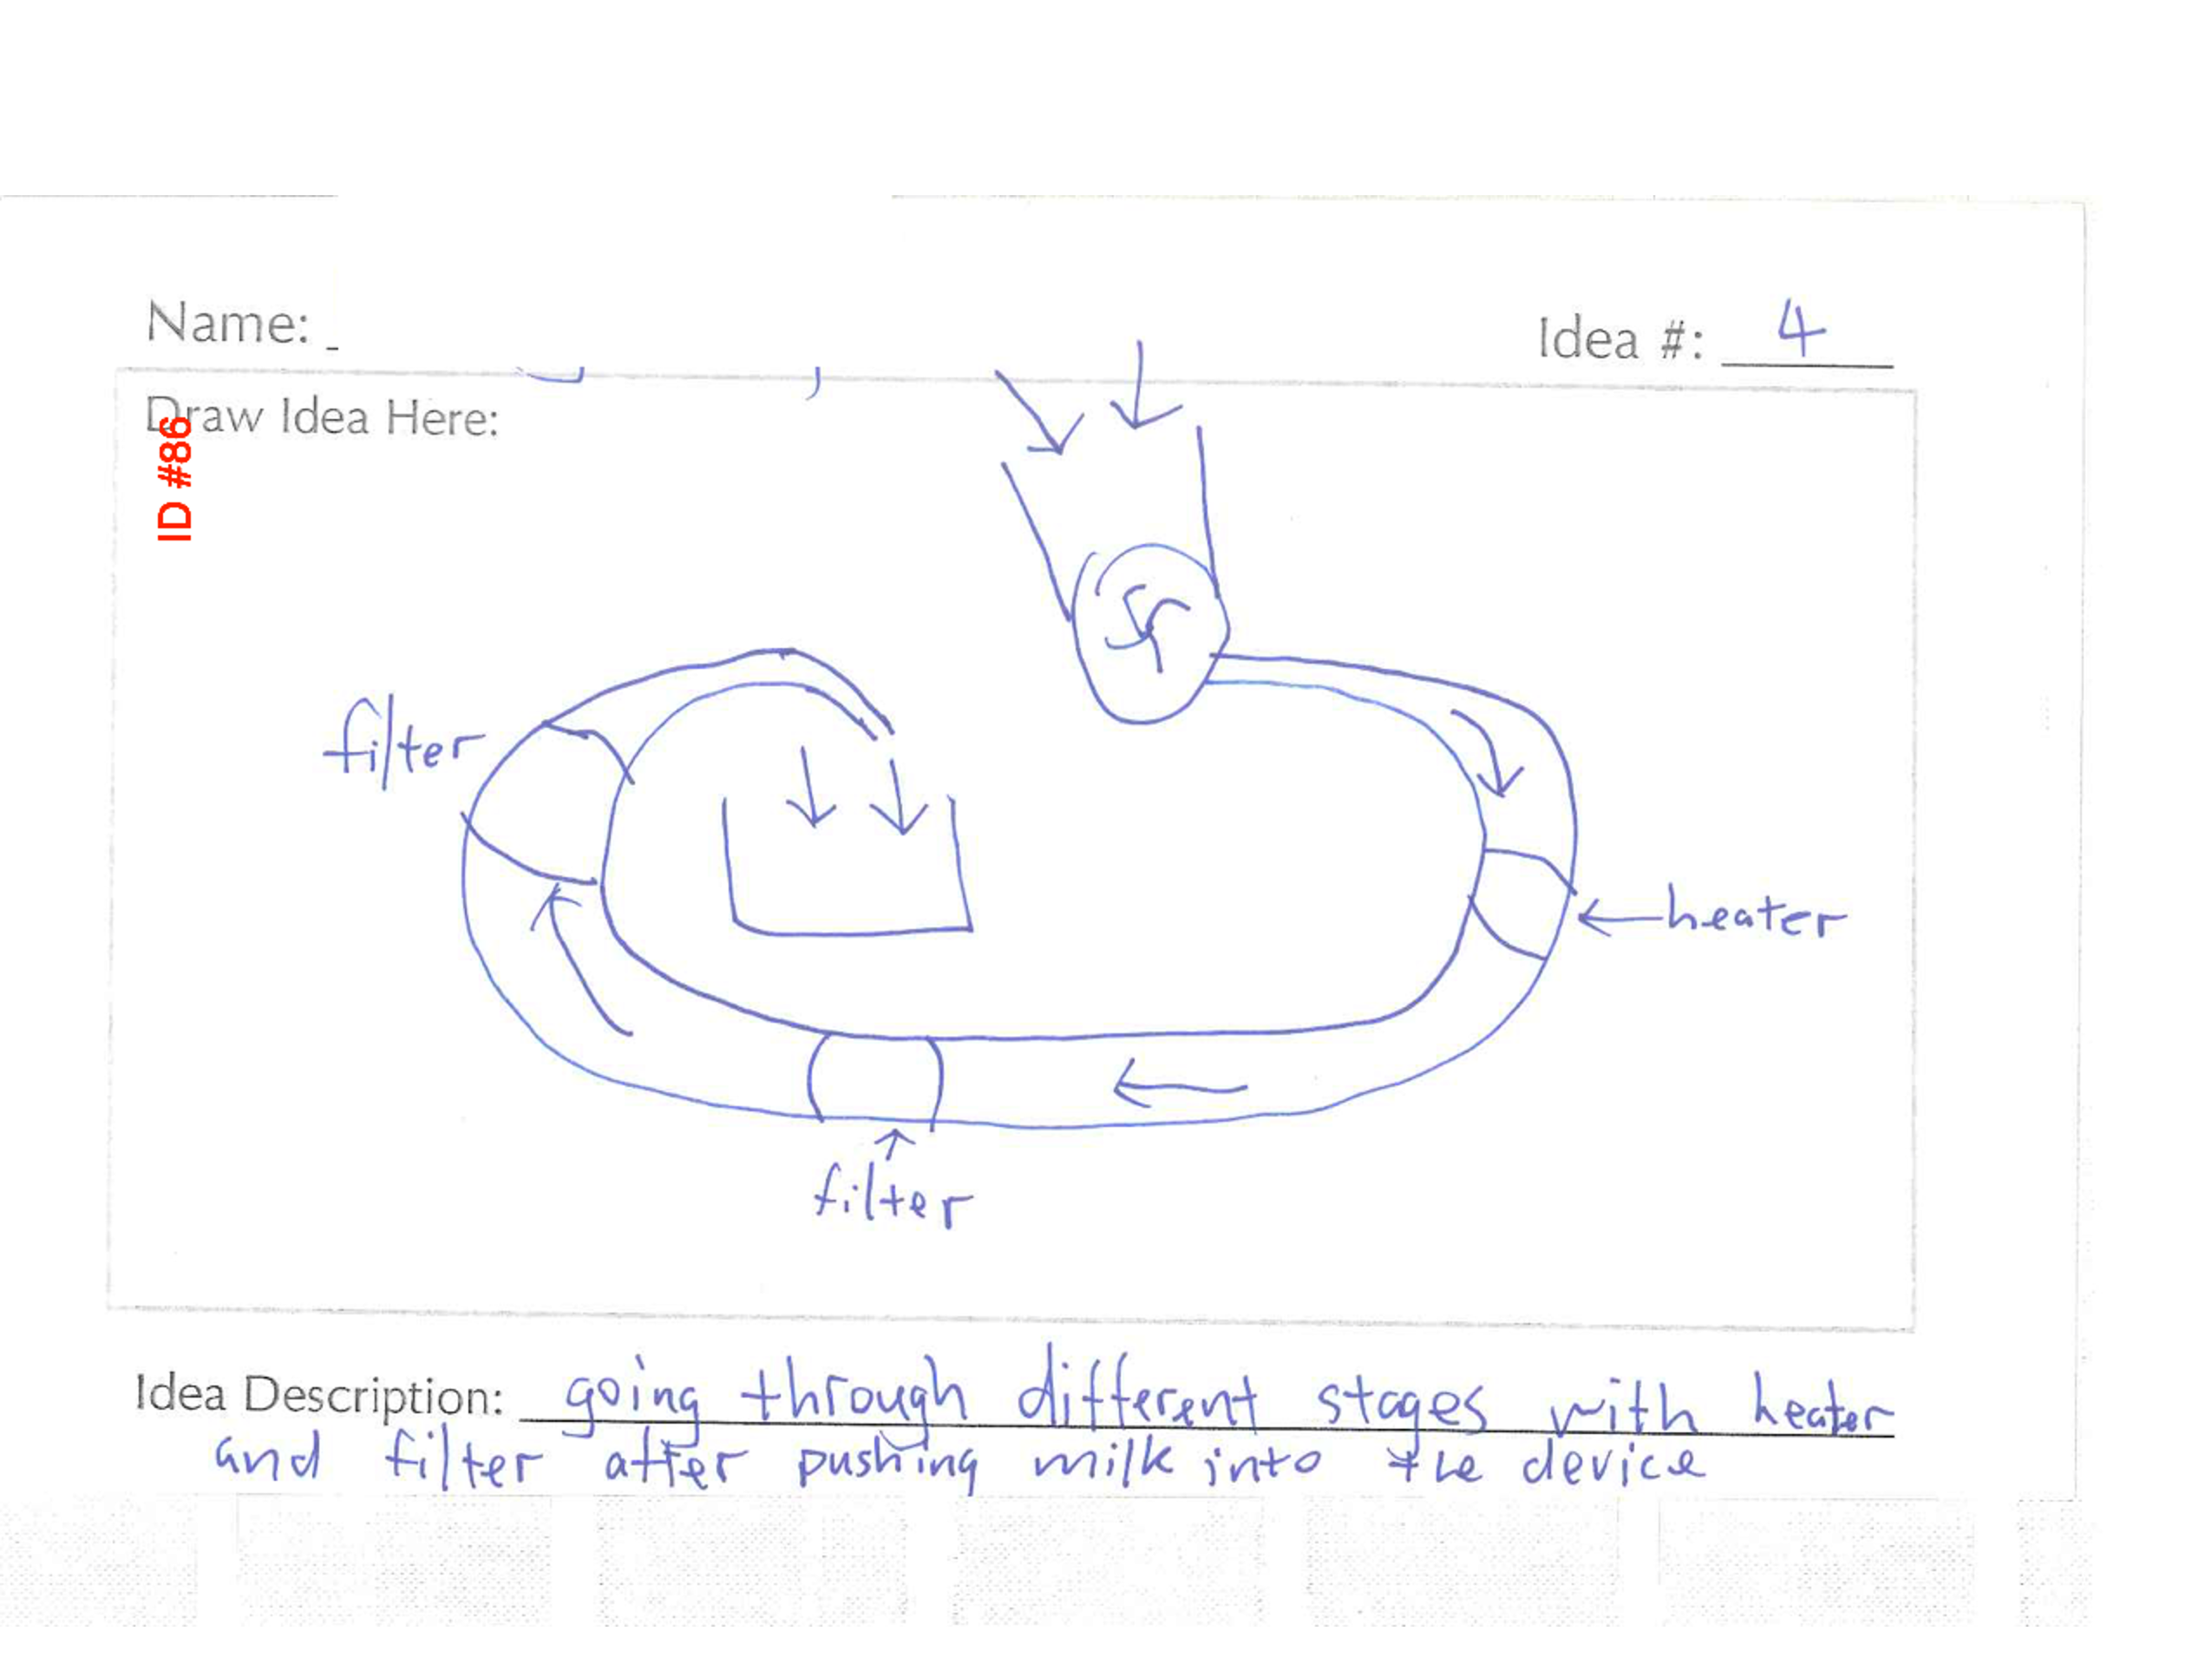 Name:
Idea #: 4
Draw Idea Here:
ID #86
filter
heater
filter
Idea Description: going through different stages with heater
and filter after pushing milk into the device